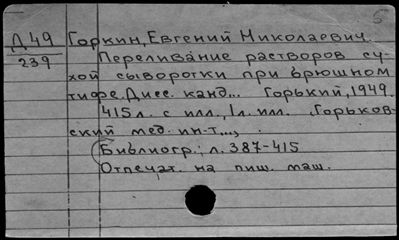 Д 49 Горкин, Евгений Николаевич.
239 Переливание растворов су-
хой сыворотки при брюшном
тифе. Дисс. канд... Горький, 1949.
415 л. с илл., 1 л. илл. Горьков-
ский мед. ин-т...,
Библиогр.: л. 387-415
Отпечат. на пиш. маш.